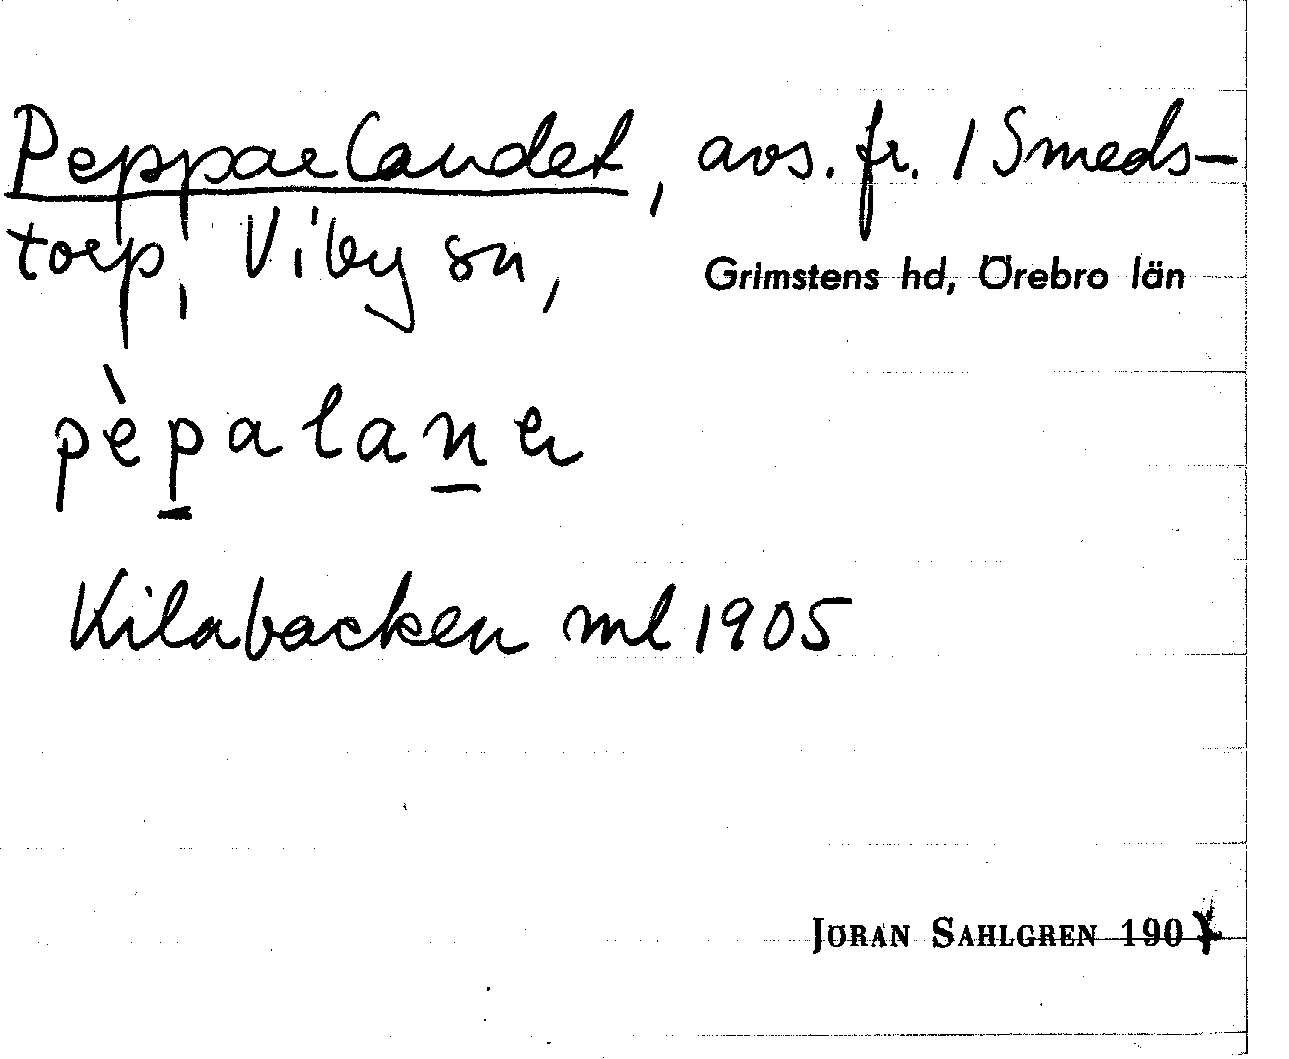 Pepparlandet, avs. fr. 1 Smeds-
torp, Viby sn,
Grimstens hd, Örebro län
pèpalaner
Kilabacken ml 1905
JÖRAN SAHLGREN 190